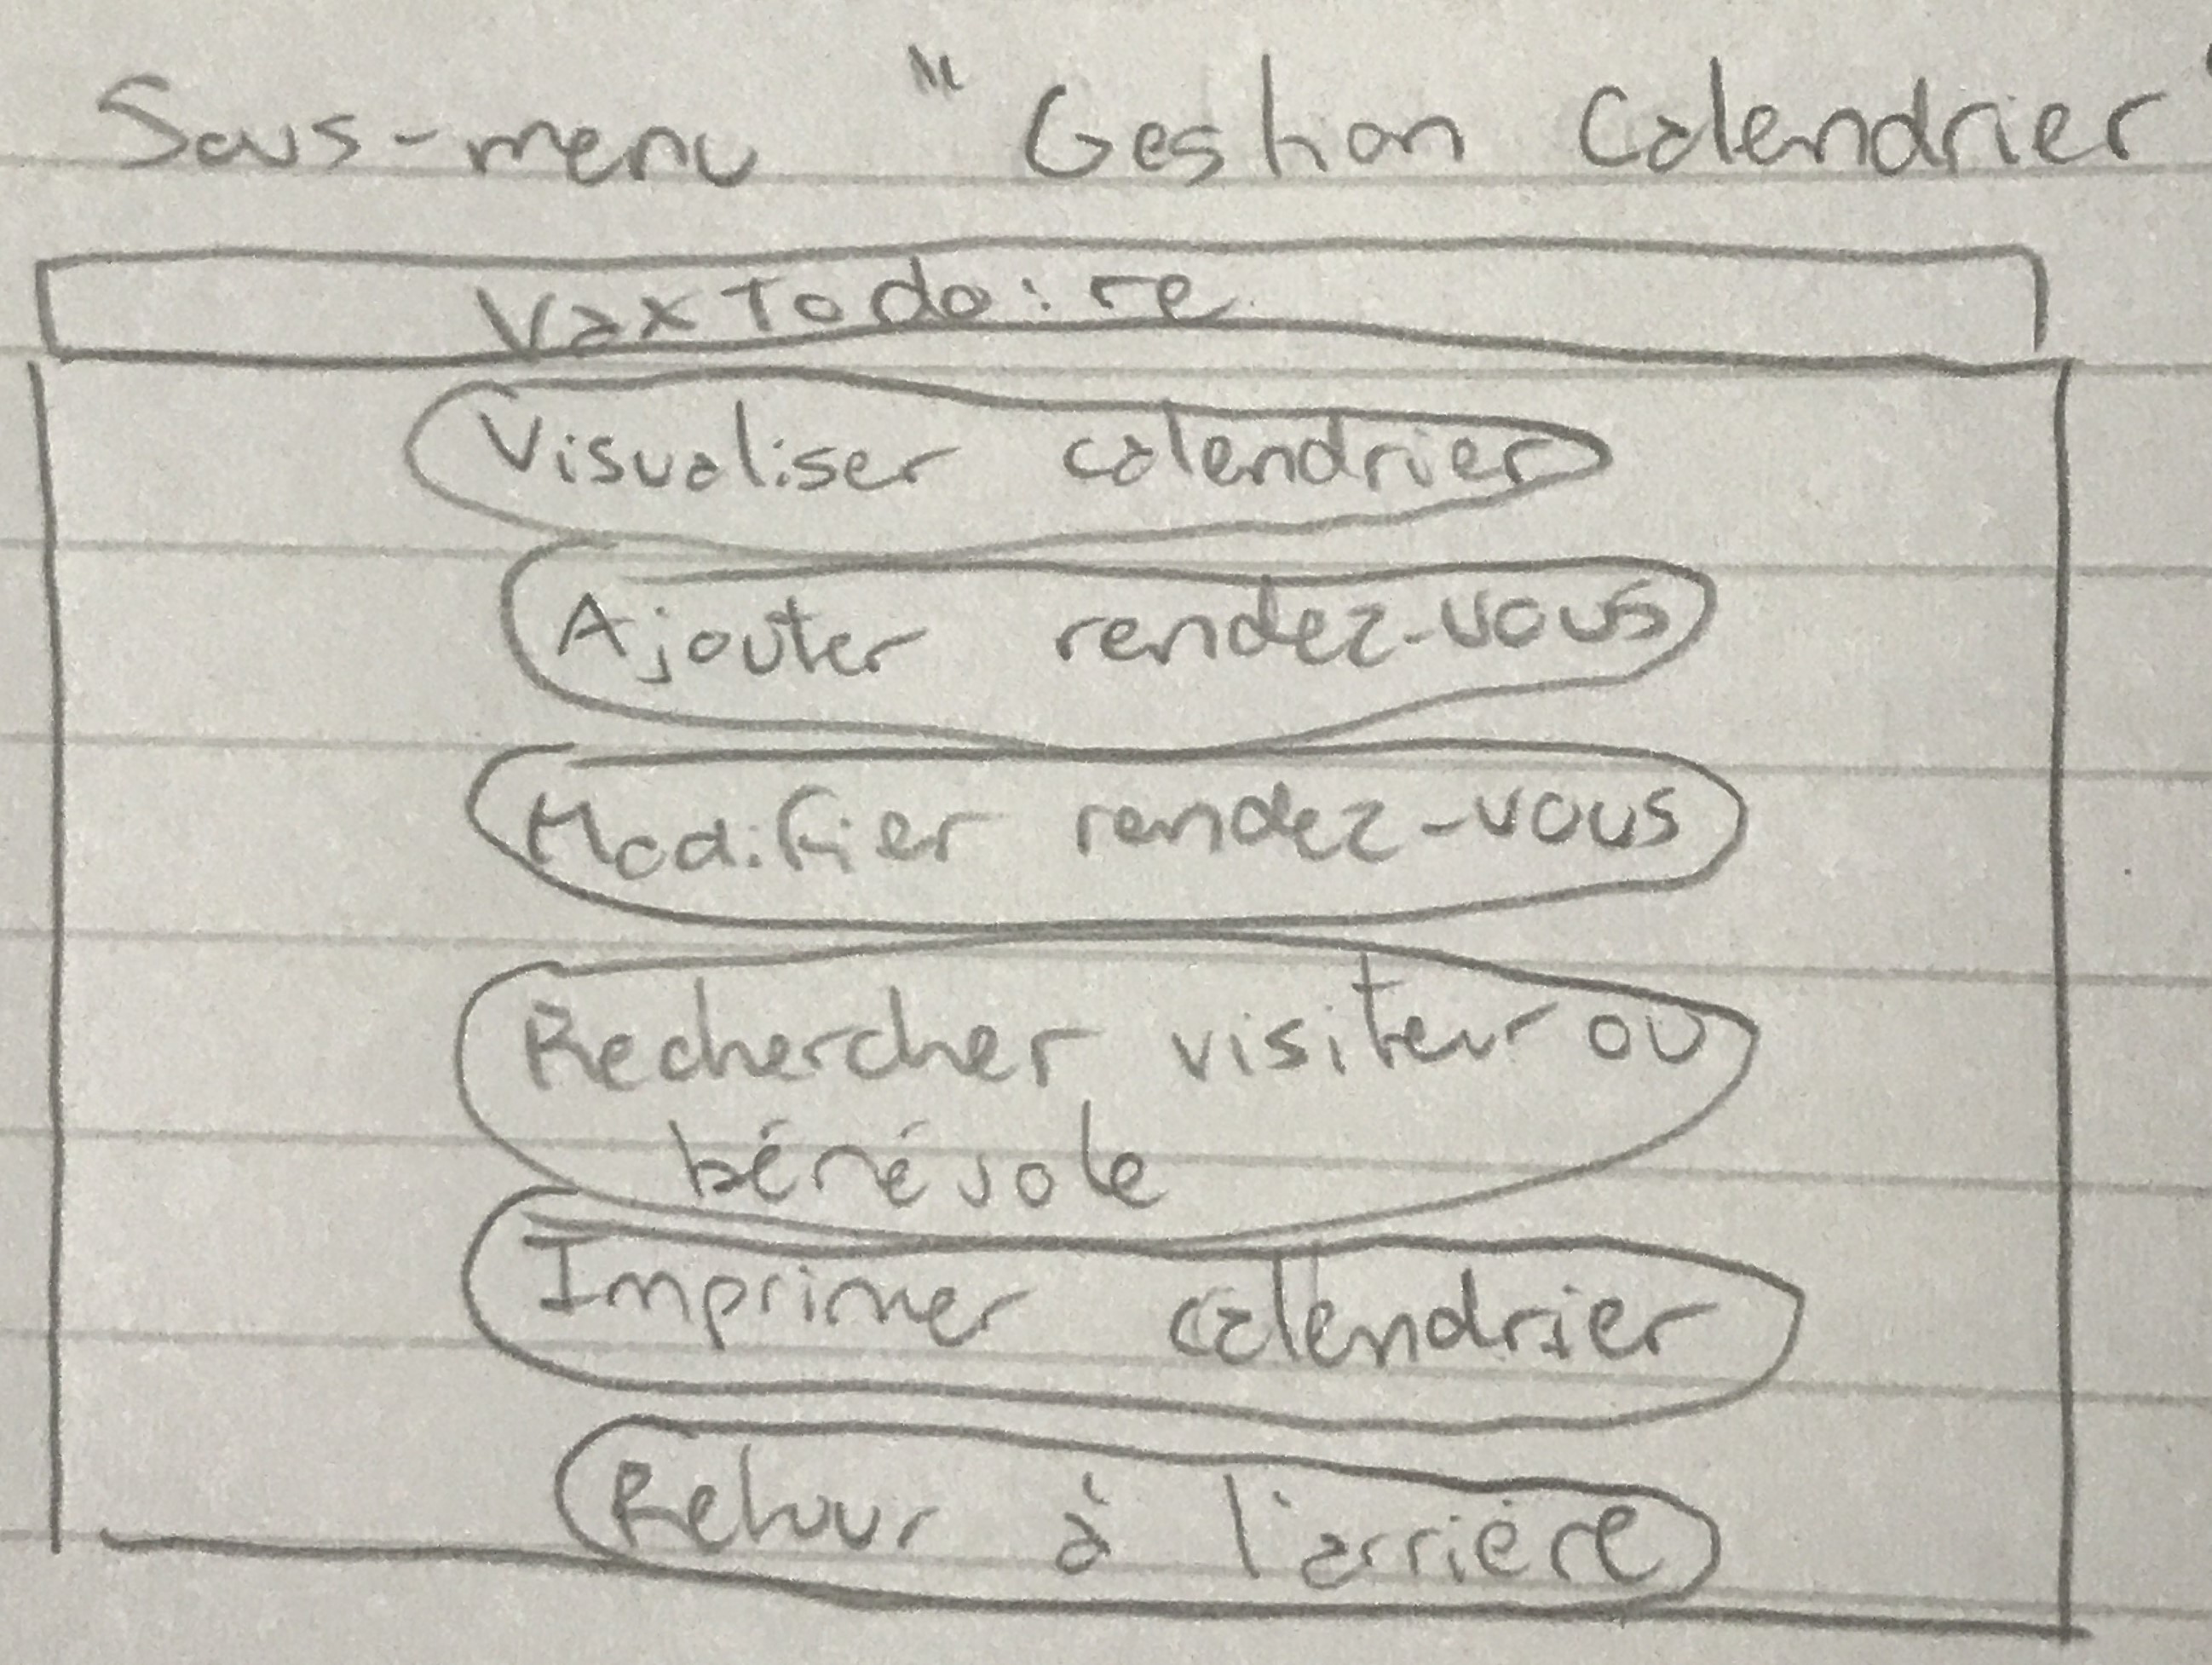 Sous-menu "Gestion Calendrier"
VaxTodo:re
Visualiser calendrier
Ajouter rendez-vous
Modifier rendez-vous
Rechercher visiteur ou
bénévole
Imprimer calendrier
Retour à l'arrière